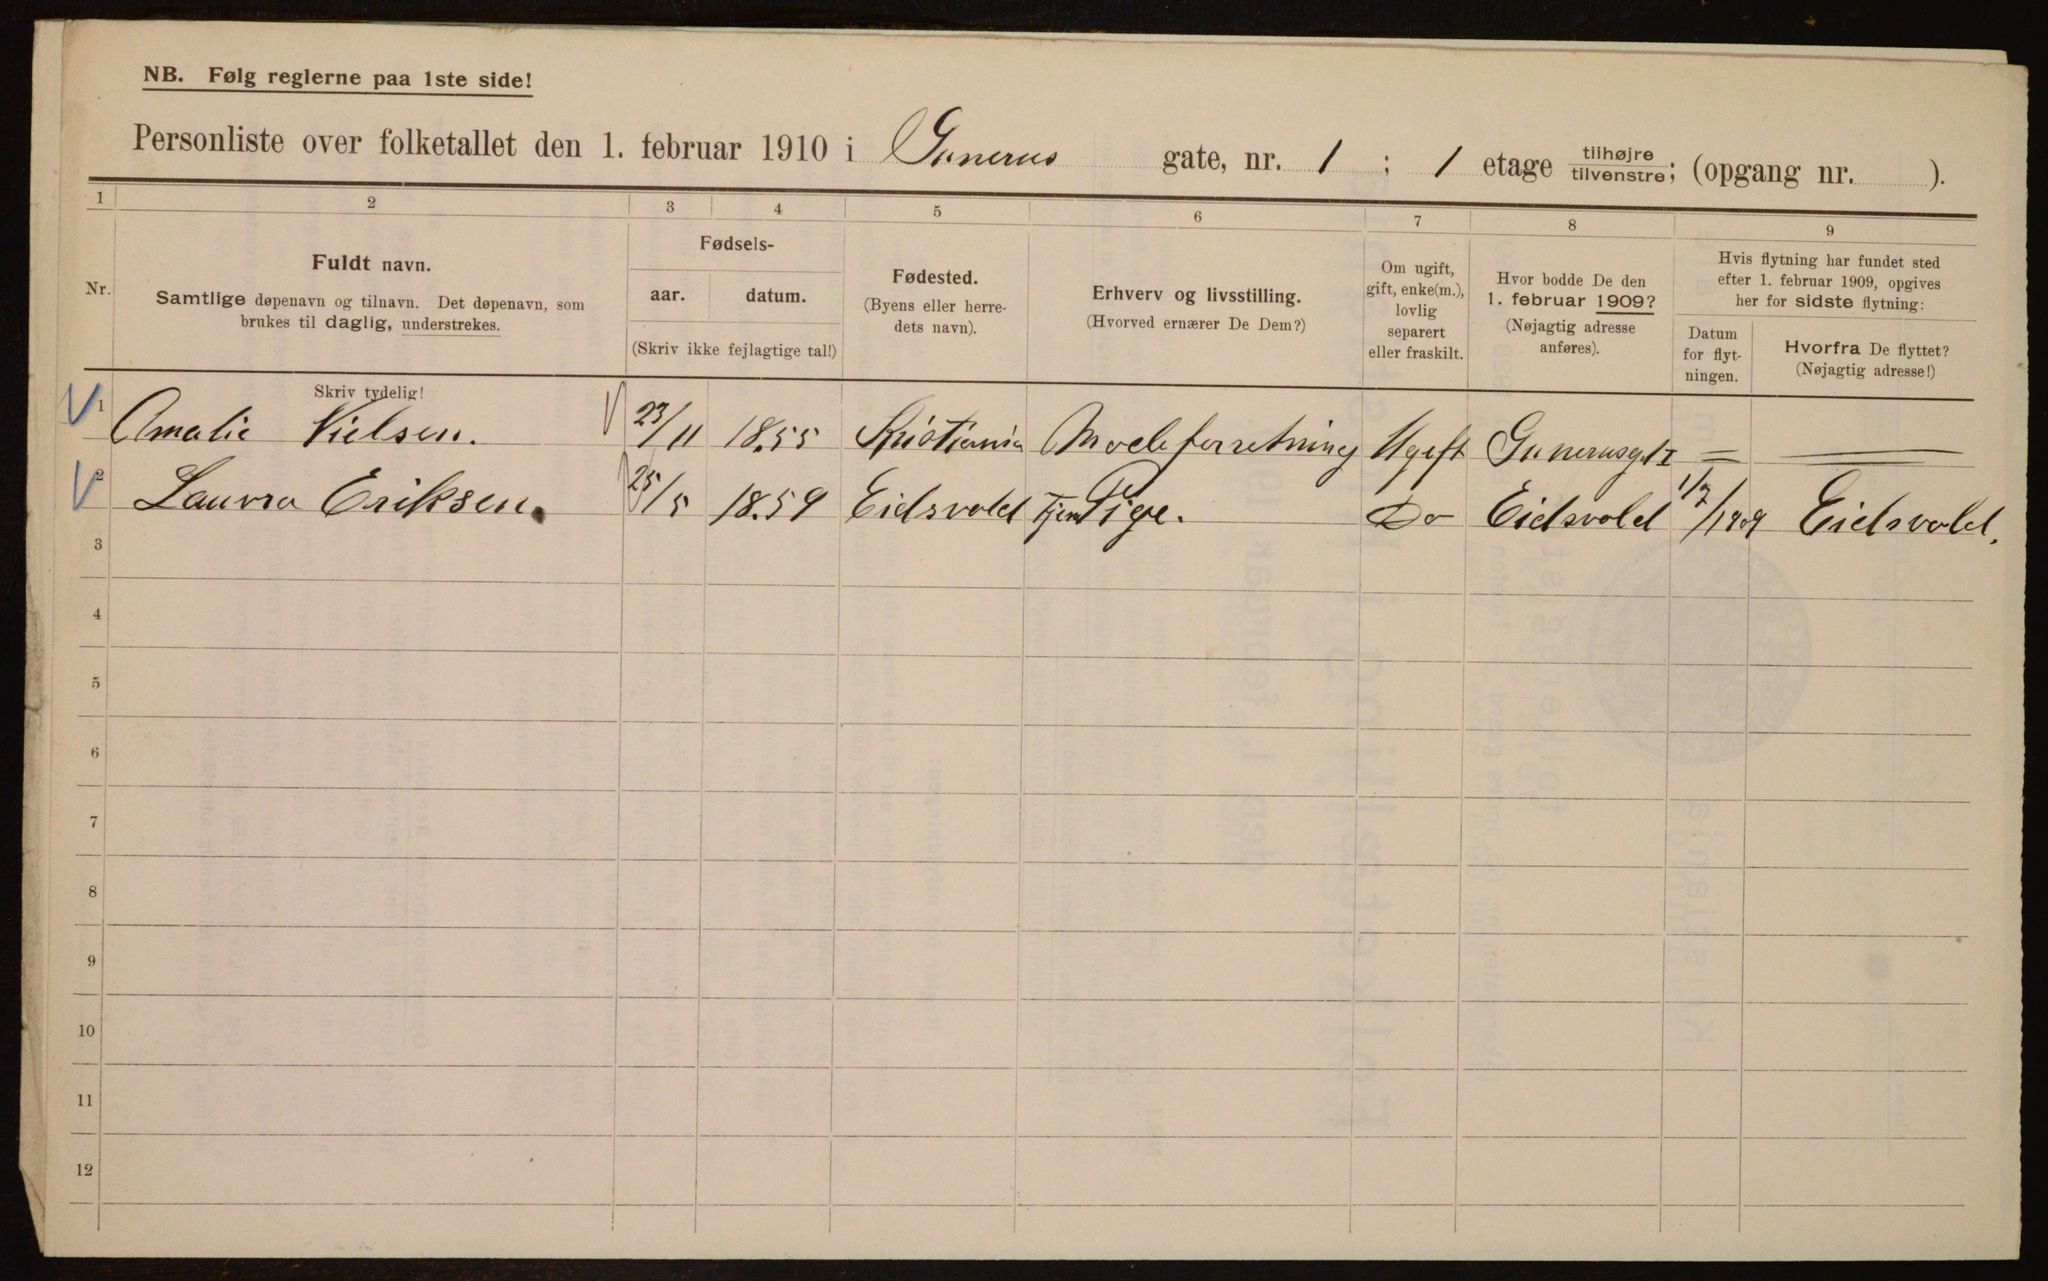 NB. Følg reglerne paa 1ste side!
Personliste over folketallet den 1. februar 1910 i Gunerus gate, nr. 1 ; 1 etage tilhøjre tilvenstre; (opgang nr. ).
1 2 3 4 5 6 7 8 9
Nr.
Fuldt navn.
Samtlige døpenavn og tilnavn. Det døpenavn, som
brukes til daglig, understrekes.
Skriv tydelig!
Fødsels-
aar. datum.
(Skriv ikke fejlagtige tal!)
Fødested.
(Byens eller herre-
dets navn).
Erhverv og livsstilling.
(Hvorved ernærer De Dem?)
Om ugift,
gift, enke(m.),
lovlig
separert
eller fraskilt.
Hvor bodde De den
1. februar 1909?
(Nøjagtig adresse
anføres).
Hvis flytning har fundet sted
efter 1. februar 1909, opgives
her for sidste flytning:
Datum
for flyt-
ningen.
Hvorfra De flyttet?
(Nøjagtig adresse!)
1 Amalie Nielsen. 23/11 18.55 Kristiania Modeforretning Ugift Gunerusgt 1 = —
2 Laura Eriksen. 25/5 18.59 Eidsvold Tjen Pige. Do Eidsvold 1/7/1909 Eidsvold.
3
4
5
6
7
8
9
10
11
12